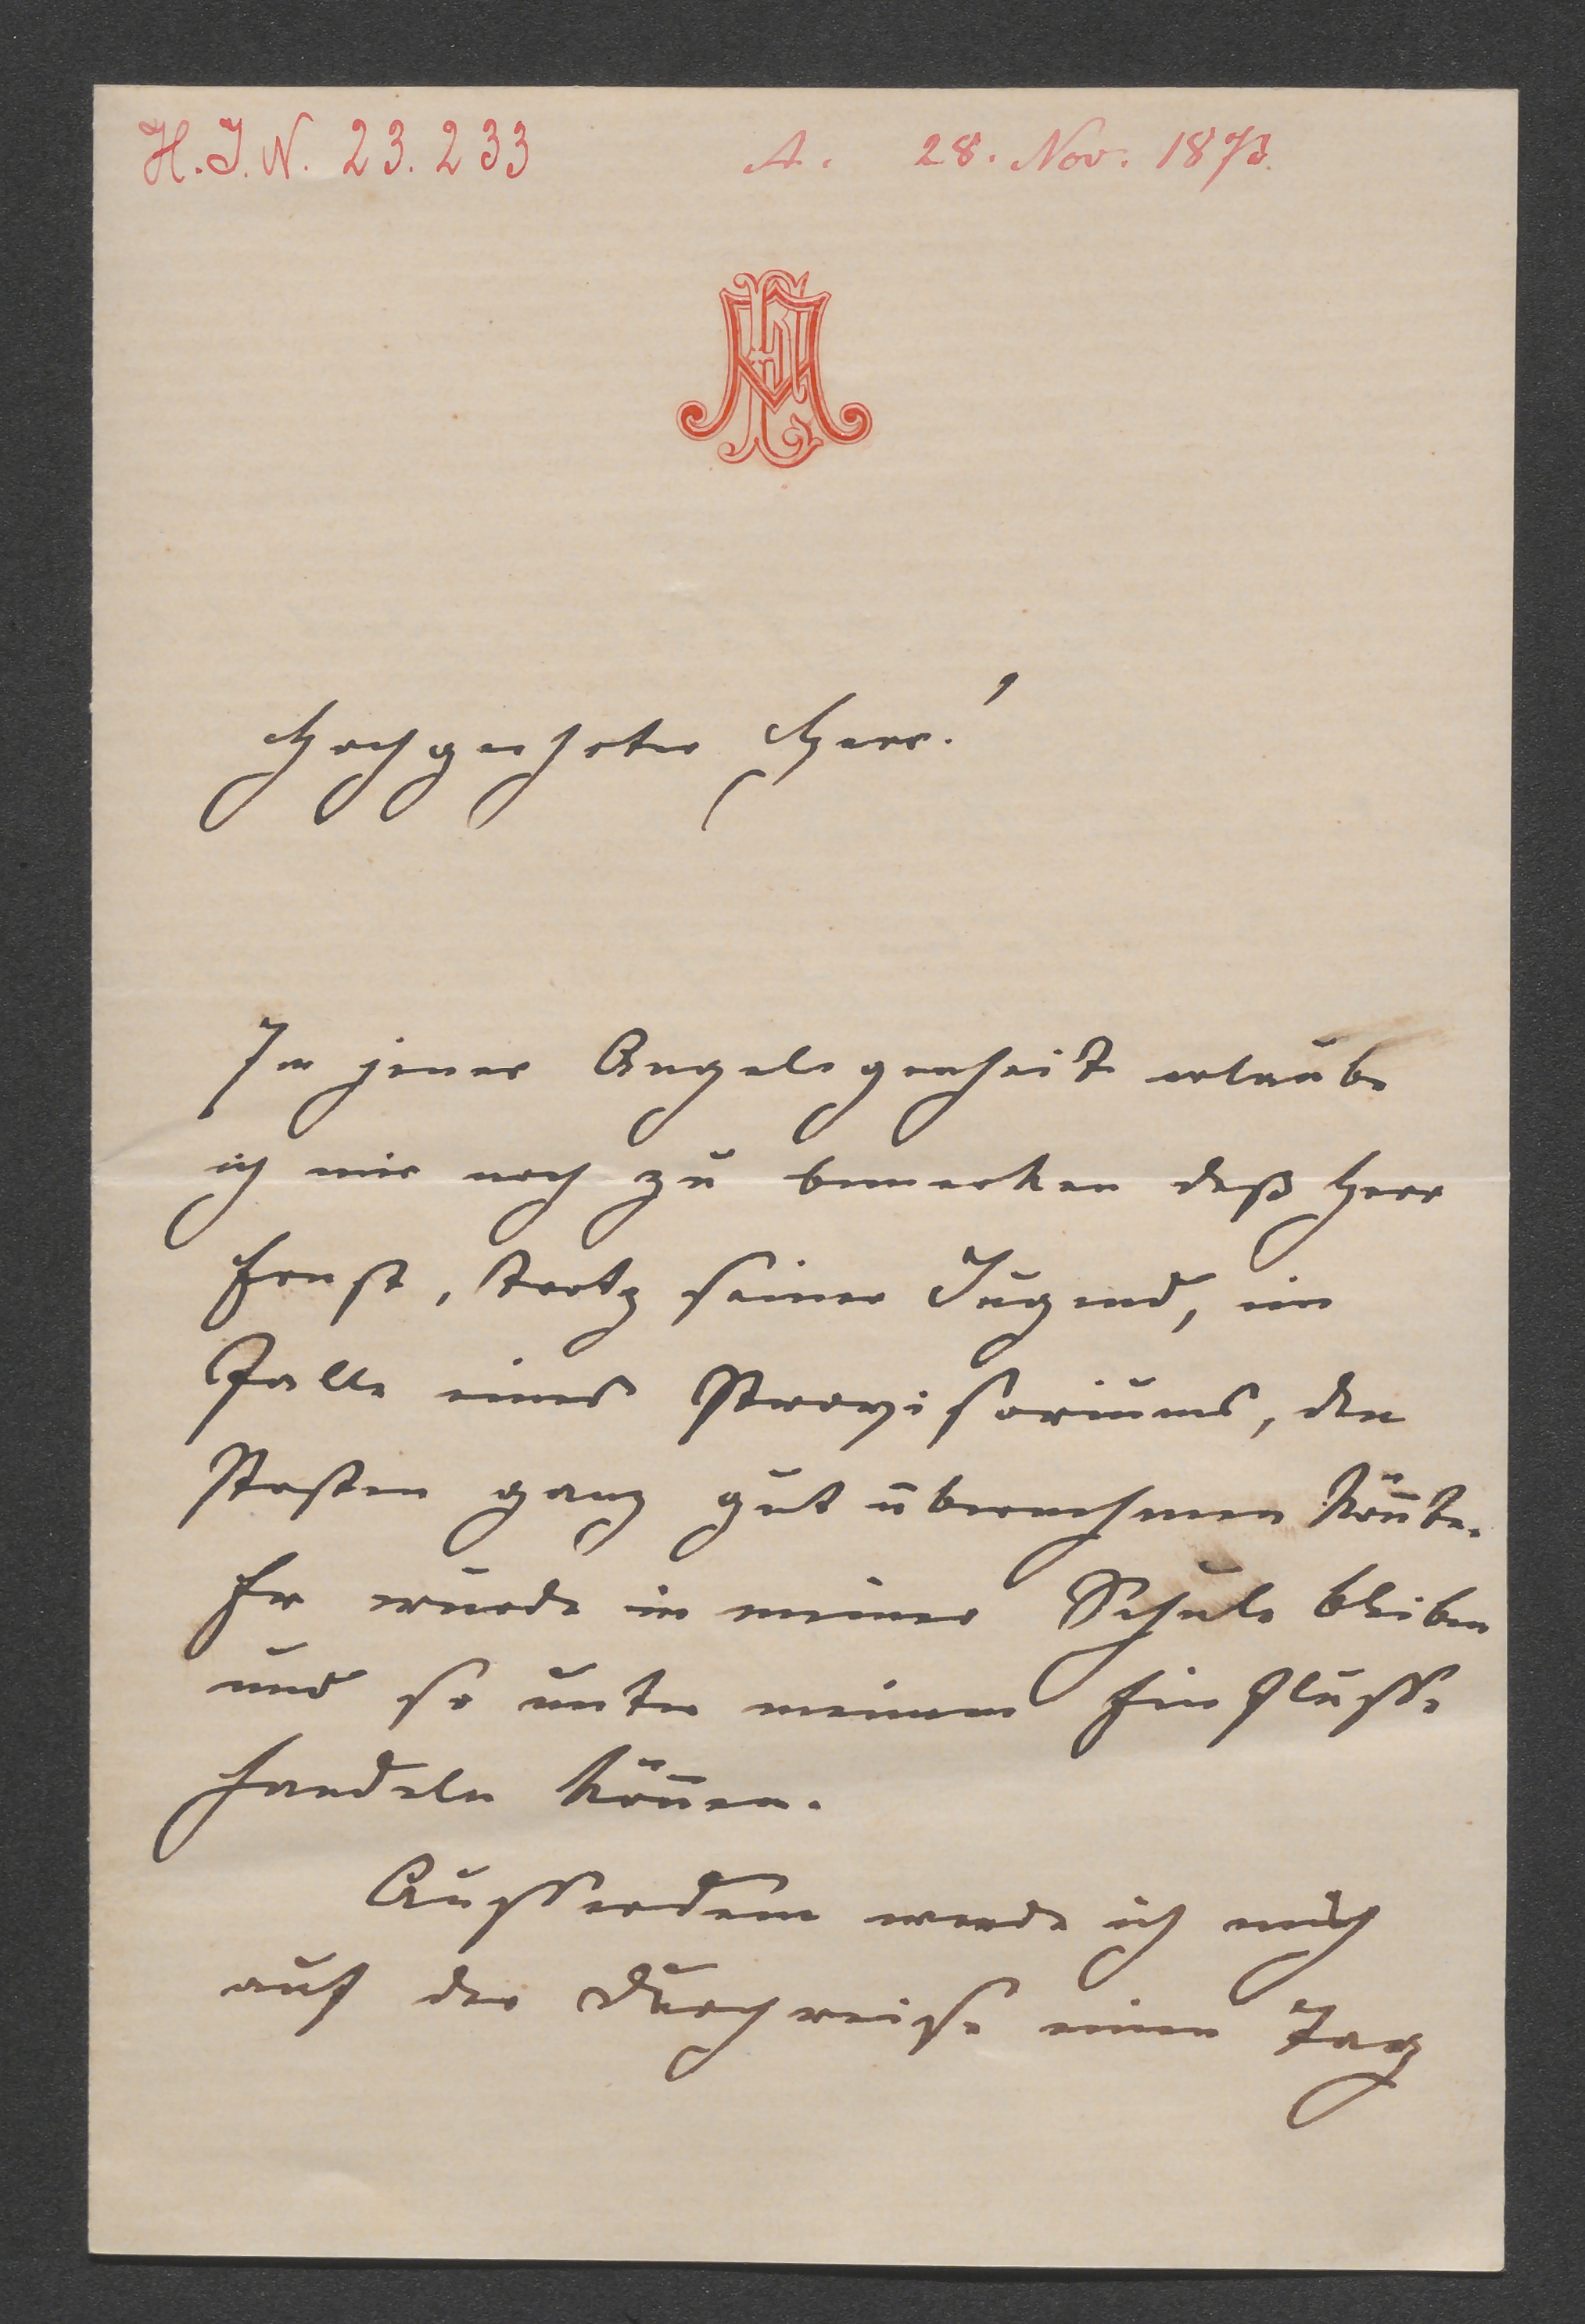 H.I.N. 23.233 A. 28. Nov. 1873
Hochgeehrter Herr!
In jener Angelegenheit erlaube
ich mir noch zu bemerken daß Herr
Ernst, trotz seiner Jugend, im
Falle eines Provisoriums, den
Posten ganz gut übernehmen kön̅te.
Er würde in meiner Schule bleiben
und so unter meinem Einflusse
handeln kön̅en.
Ausserdem werde ich mich
auf der Durchreise einen Tag